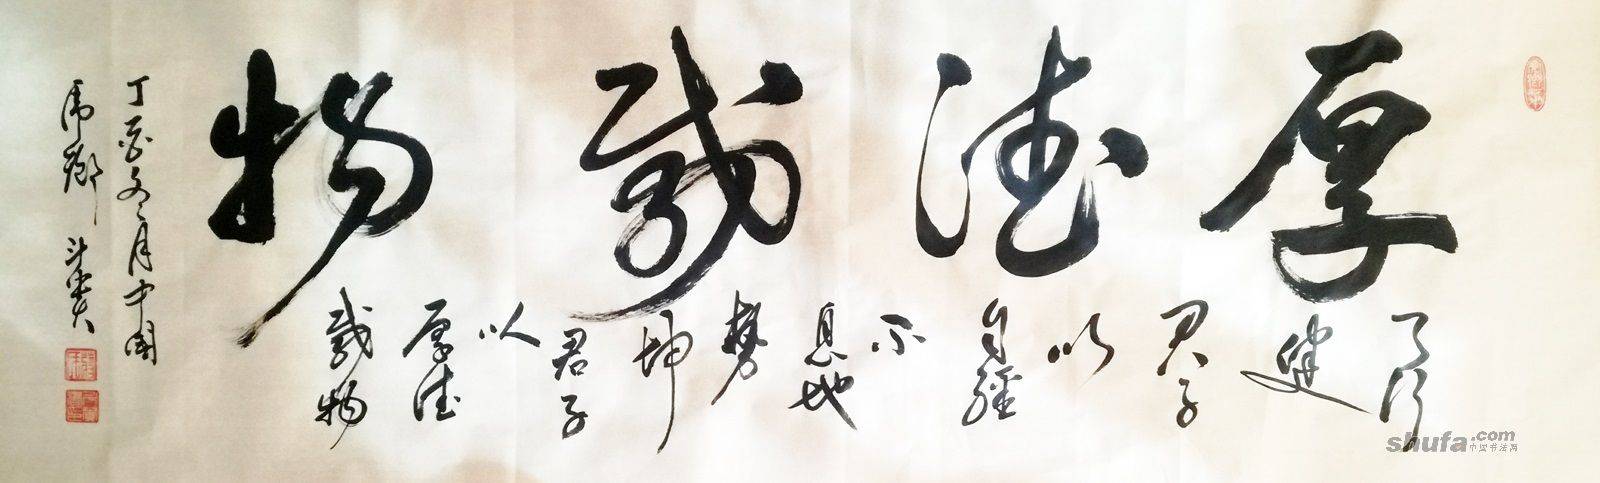 厚德載物
天行
健
君子
以
自强
不
息地
勢
坤
君子
以
厚德
載物
丁酉冬月中國
shufa.com
中国书法网